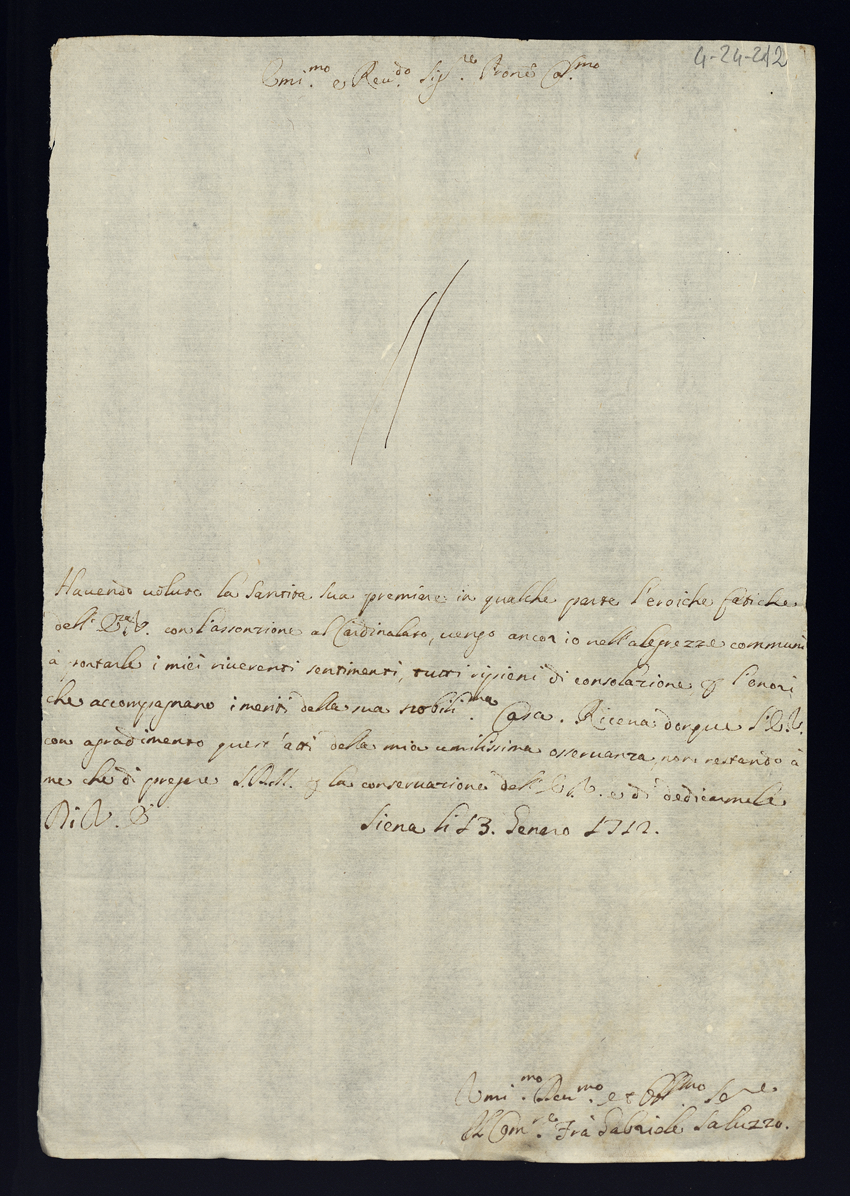 4-24-212
Emi.mo e Reu.do Sig.re Prone Col.mo
Hauendo uoluto la Santita sua premiare in qualche parte l'eroiche fatiche
dell' E.za V. con l'assonzione al Cardinalato, uengo ancor io nell'alegrezze communi
à portarle i miei riuerenti sentimenti, tutti ripieni di consolazione p l'onori
che accompagnano i meriti della sua nobili.ma Casa. Riceua dorque l'E.V.
con agradimento quest'atti della mia umilissima osseruanza, non restando à
me che di pregare S.D.M. p la conseruazione dell' E.V. e di dedicarmele
Di V. E.
Siena li 13. Genaro 1712.
Emi.mo Reu.mo e Se.re
Il Com.re Frà Gabriele Saluzzo.